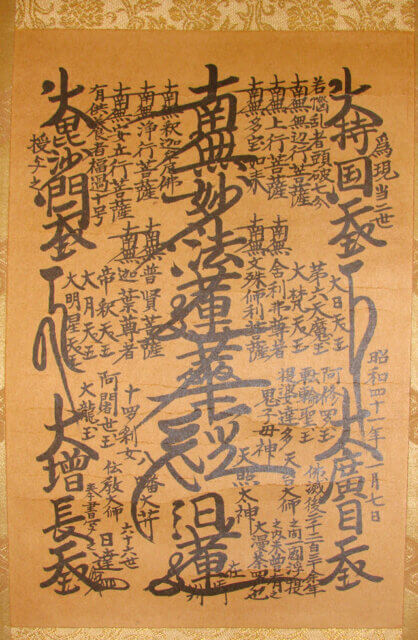 爲現当二世
大持国天王
若悩乱者頭破七分
南無無辺行菩薩
南無上行菩薩
南無多宝如来
南無妙法蓮華経
日蓮
在御判
南無釈迦牟尼仏
南無浄行菩薩
南無安立行菩薩
有供養者福過十号
大毘沙門天王
授与之
大日天王
第六天魔王
大梵天王
南無舎利弗尊者
南無文殊師利菩薩
南無普賢菩薩
南無迦葉尊者
帝釈天王
大月天王
大明星天王
昭和四十一年一月七日
大廣目天王
阿修羅王
転輪聖王
提婆達多
鬼子母神
十羅刹女
阿闍世王
大龍王
佛滅後二千二百三十余年
之間一閻浮提
之内未曾有之
大漫荼羅也
天台大師
天照大神
八幡大菩薩
伝教大師
六十六世
日達
奉書写之
大増長天王